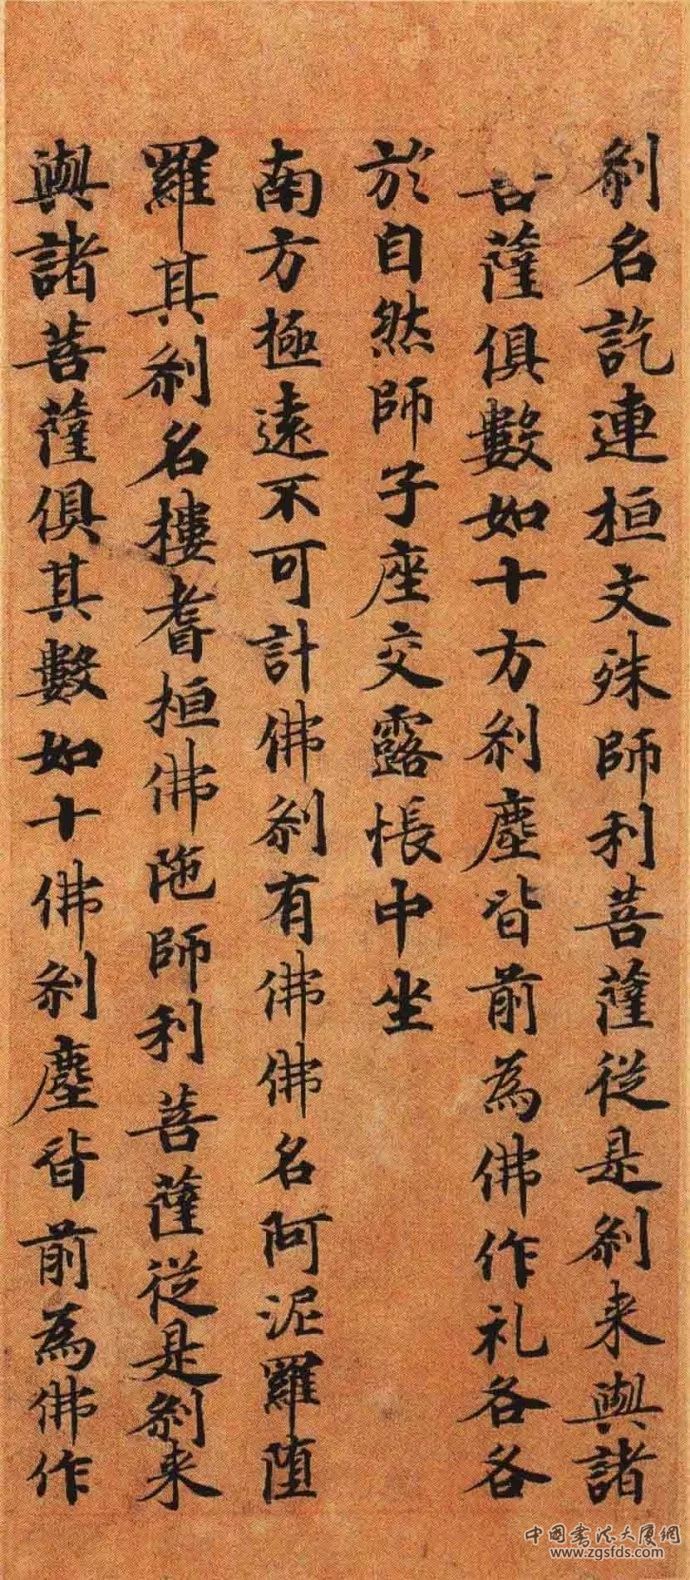 剎名訖連桓文殊師利菩薩從是剎来與諸
菩薩俱數如十方剎塵皆前為佛作礼各各
於自然師子座交露帳中坐
南方極遠不可計佛剎有佛佛名阿泥羅堕
羅其剎名樓耆桓佛陁師利菩薩從是剎来
與諸菩薩俱其數如十佛剎塵皆前為佛作
中国书法大厦網
www.zgsfds.com